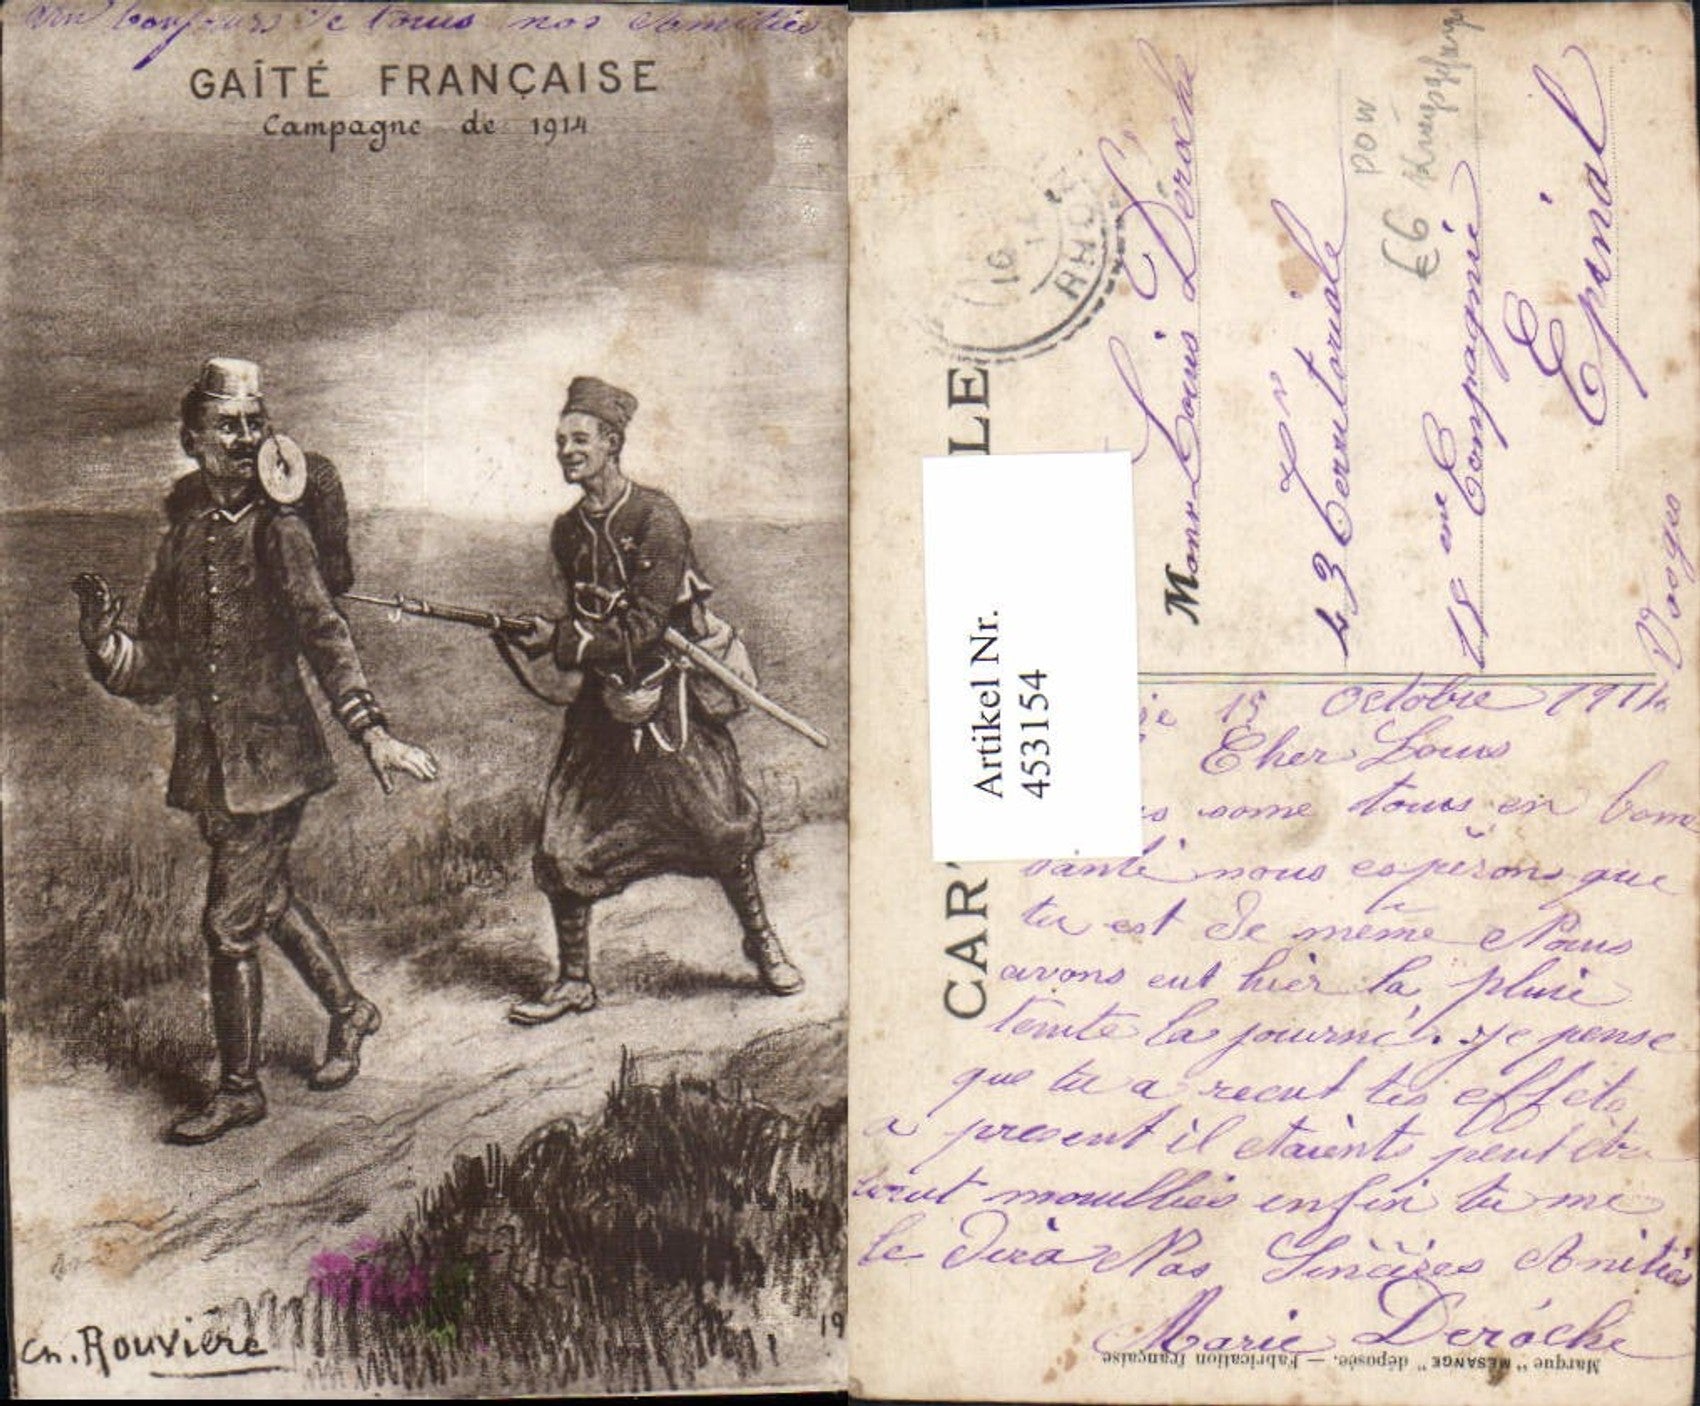 bonjours de tous nos Amitiés
GAÎTÉ FRANÇAISE
Campagne de 1914
Ch. Rouvière
19
CAR
LE
16
AHON
Artikel Nr.
453154
Monsr Louis Déroche
43 Territoriale
Compagnie
Epinal
Vosges
POW
€6
15 Octobre 1914
Cher Louis
some tous en bone
santé nous espérons que
tu est de même Nous
avons eut hier la pluie
toute la journé. Je pense
que tu a recut tes effets
a present il etaients peut être
tout mouillés enfin tu me
le dira Nos Sincères Amitiés
Marie Deroche
Marque "MÉSANGE" déposée. — Fabrication française